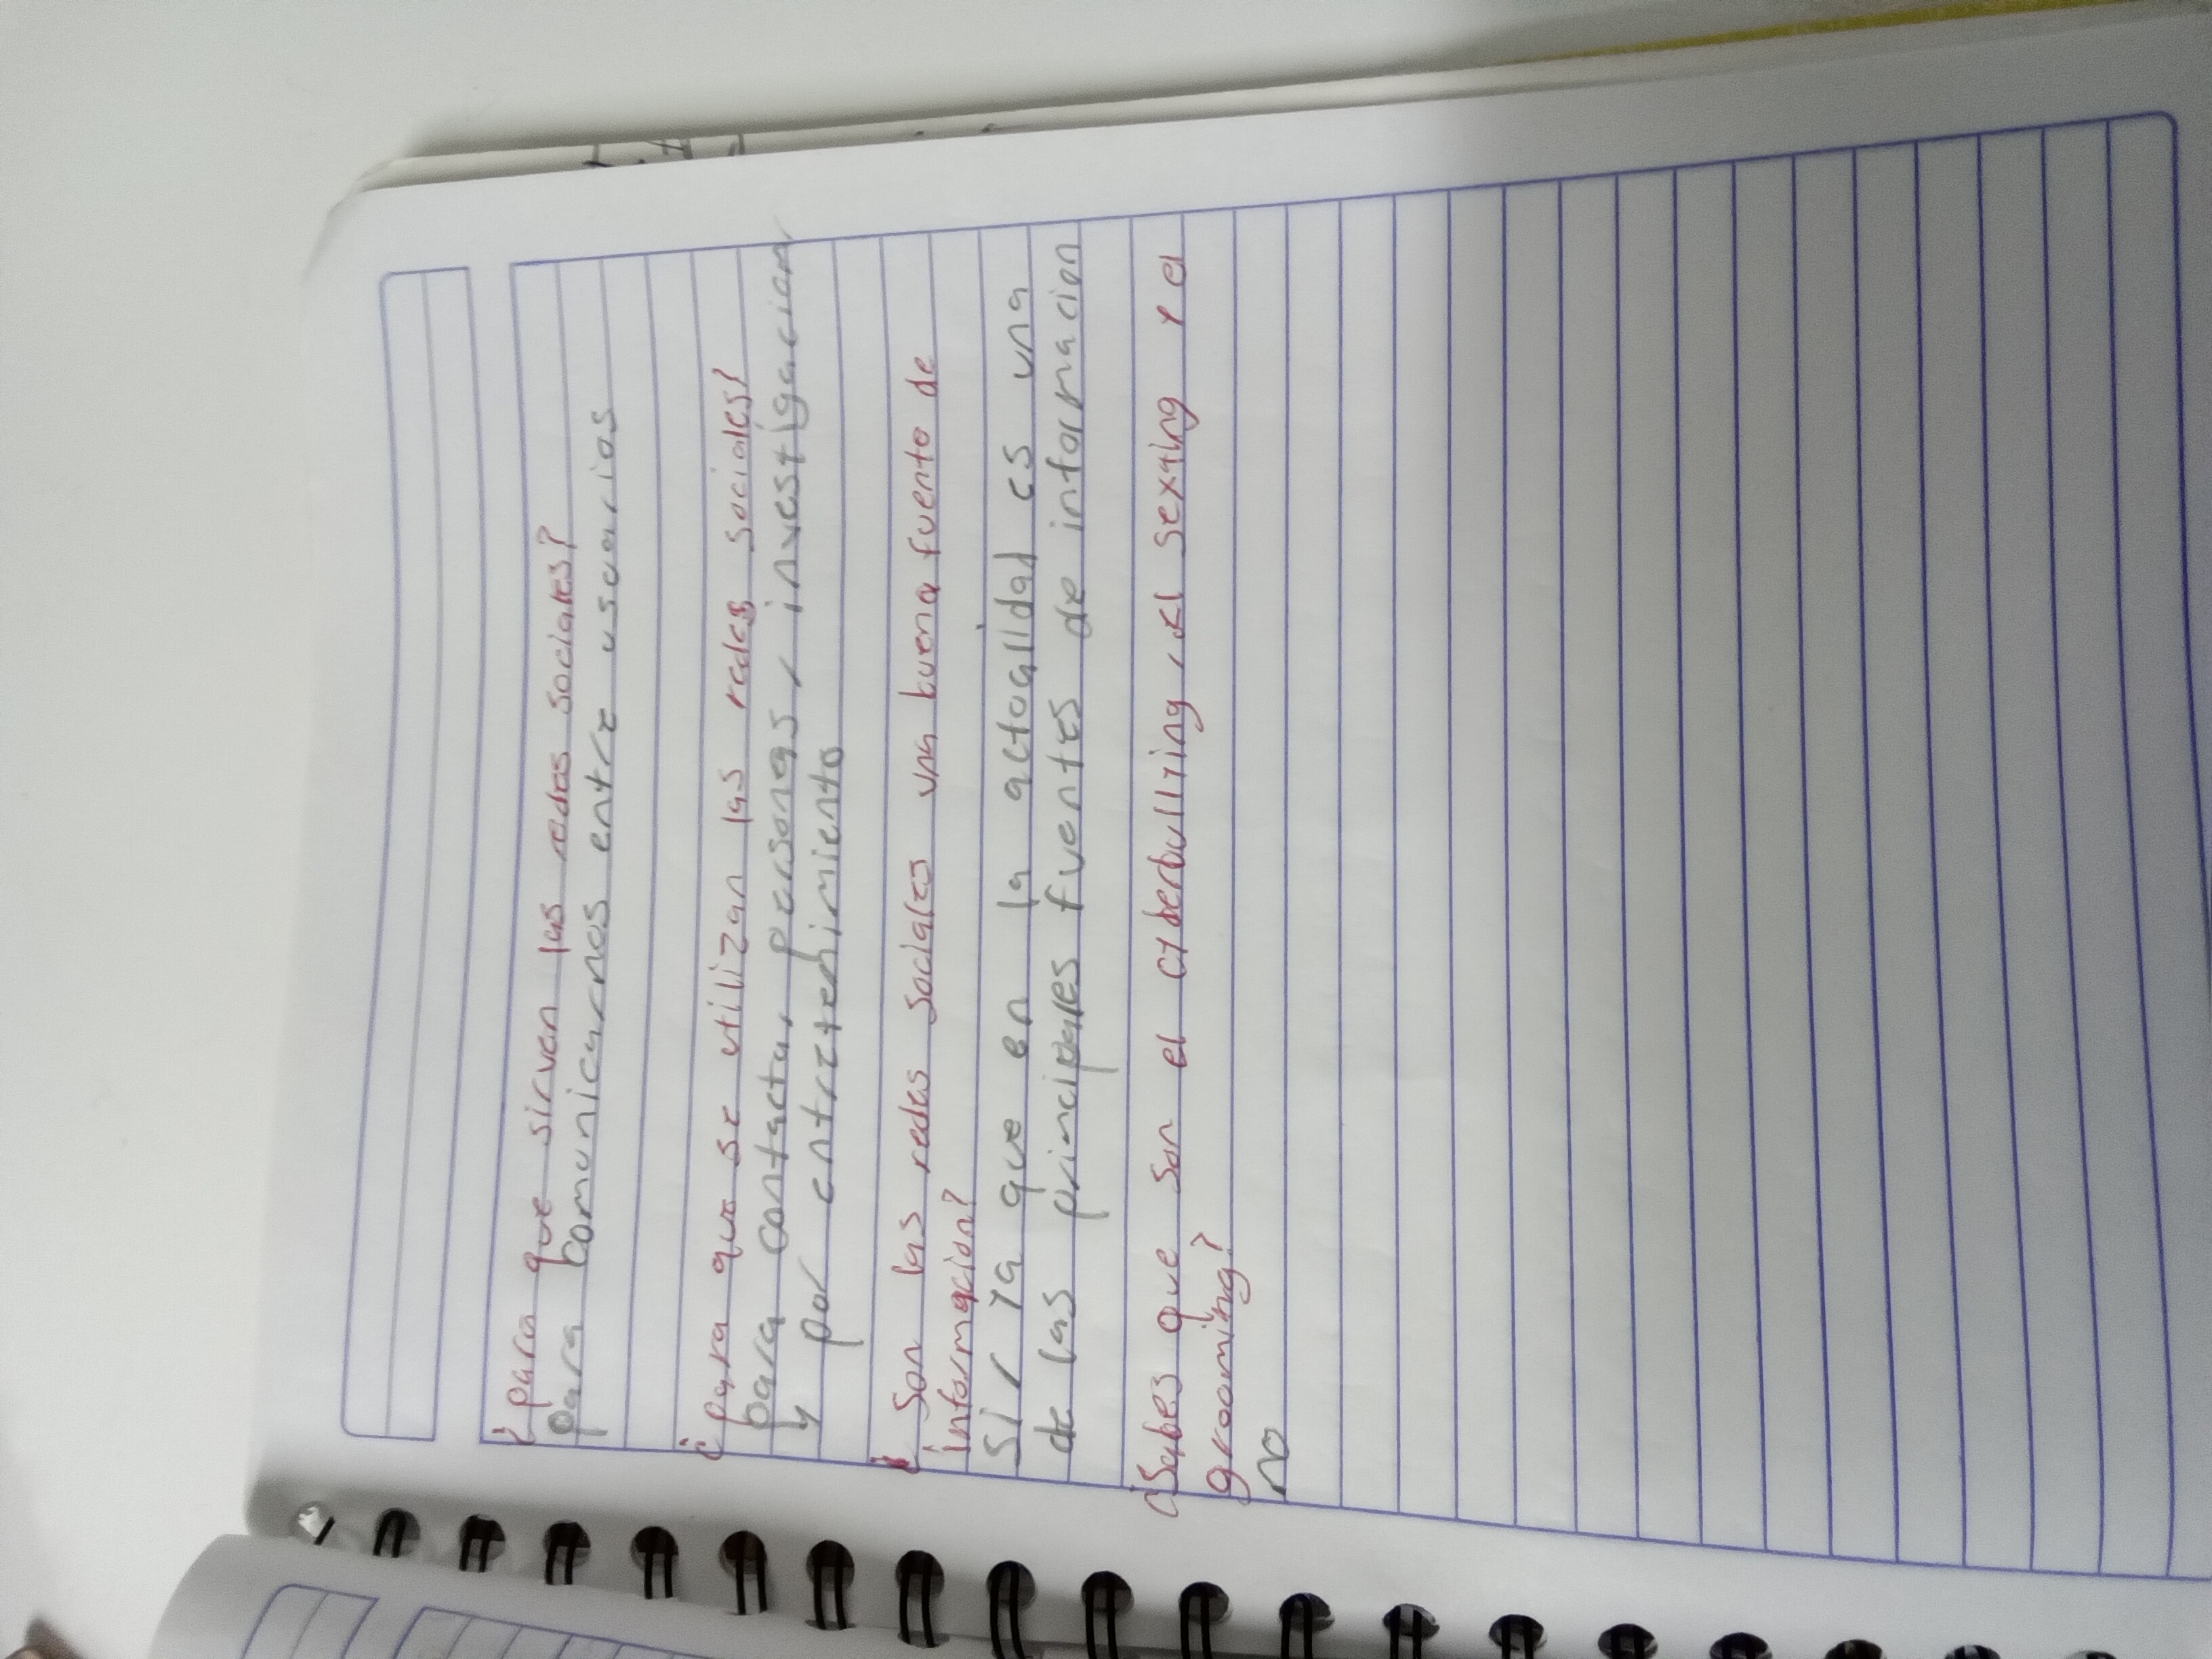 ¿para que sirven las redes sociales?
para comunicarnos entre usuarios
¿para que se utilizan las redes sociales?
para contactar personas, investigacion
y por entretenimiento
¿Son las redes sociales una buena fuente de
informacion?
Si, ya que en la actualidad es una
de las principales fuentes de informacion
¿Sabes que son el cyberbullying, el sexting y el
grooming?
no